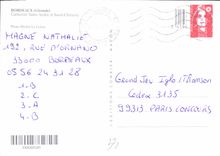 BORDEAUX (Gironde)
MAGNE NATHALIE
192, RUE D'ORNANO
33000 BORDEAUX
05 56 24 31 28
1. B
2. C
3. A
4. B
Grand Jeu Iglo / Thomson
Cedex 3135
99313 PARIS CONCOURS